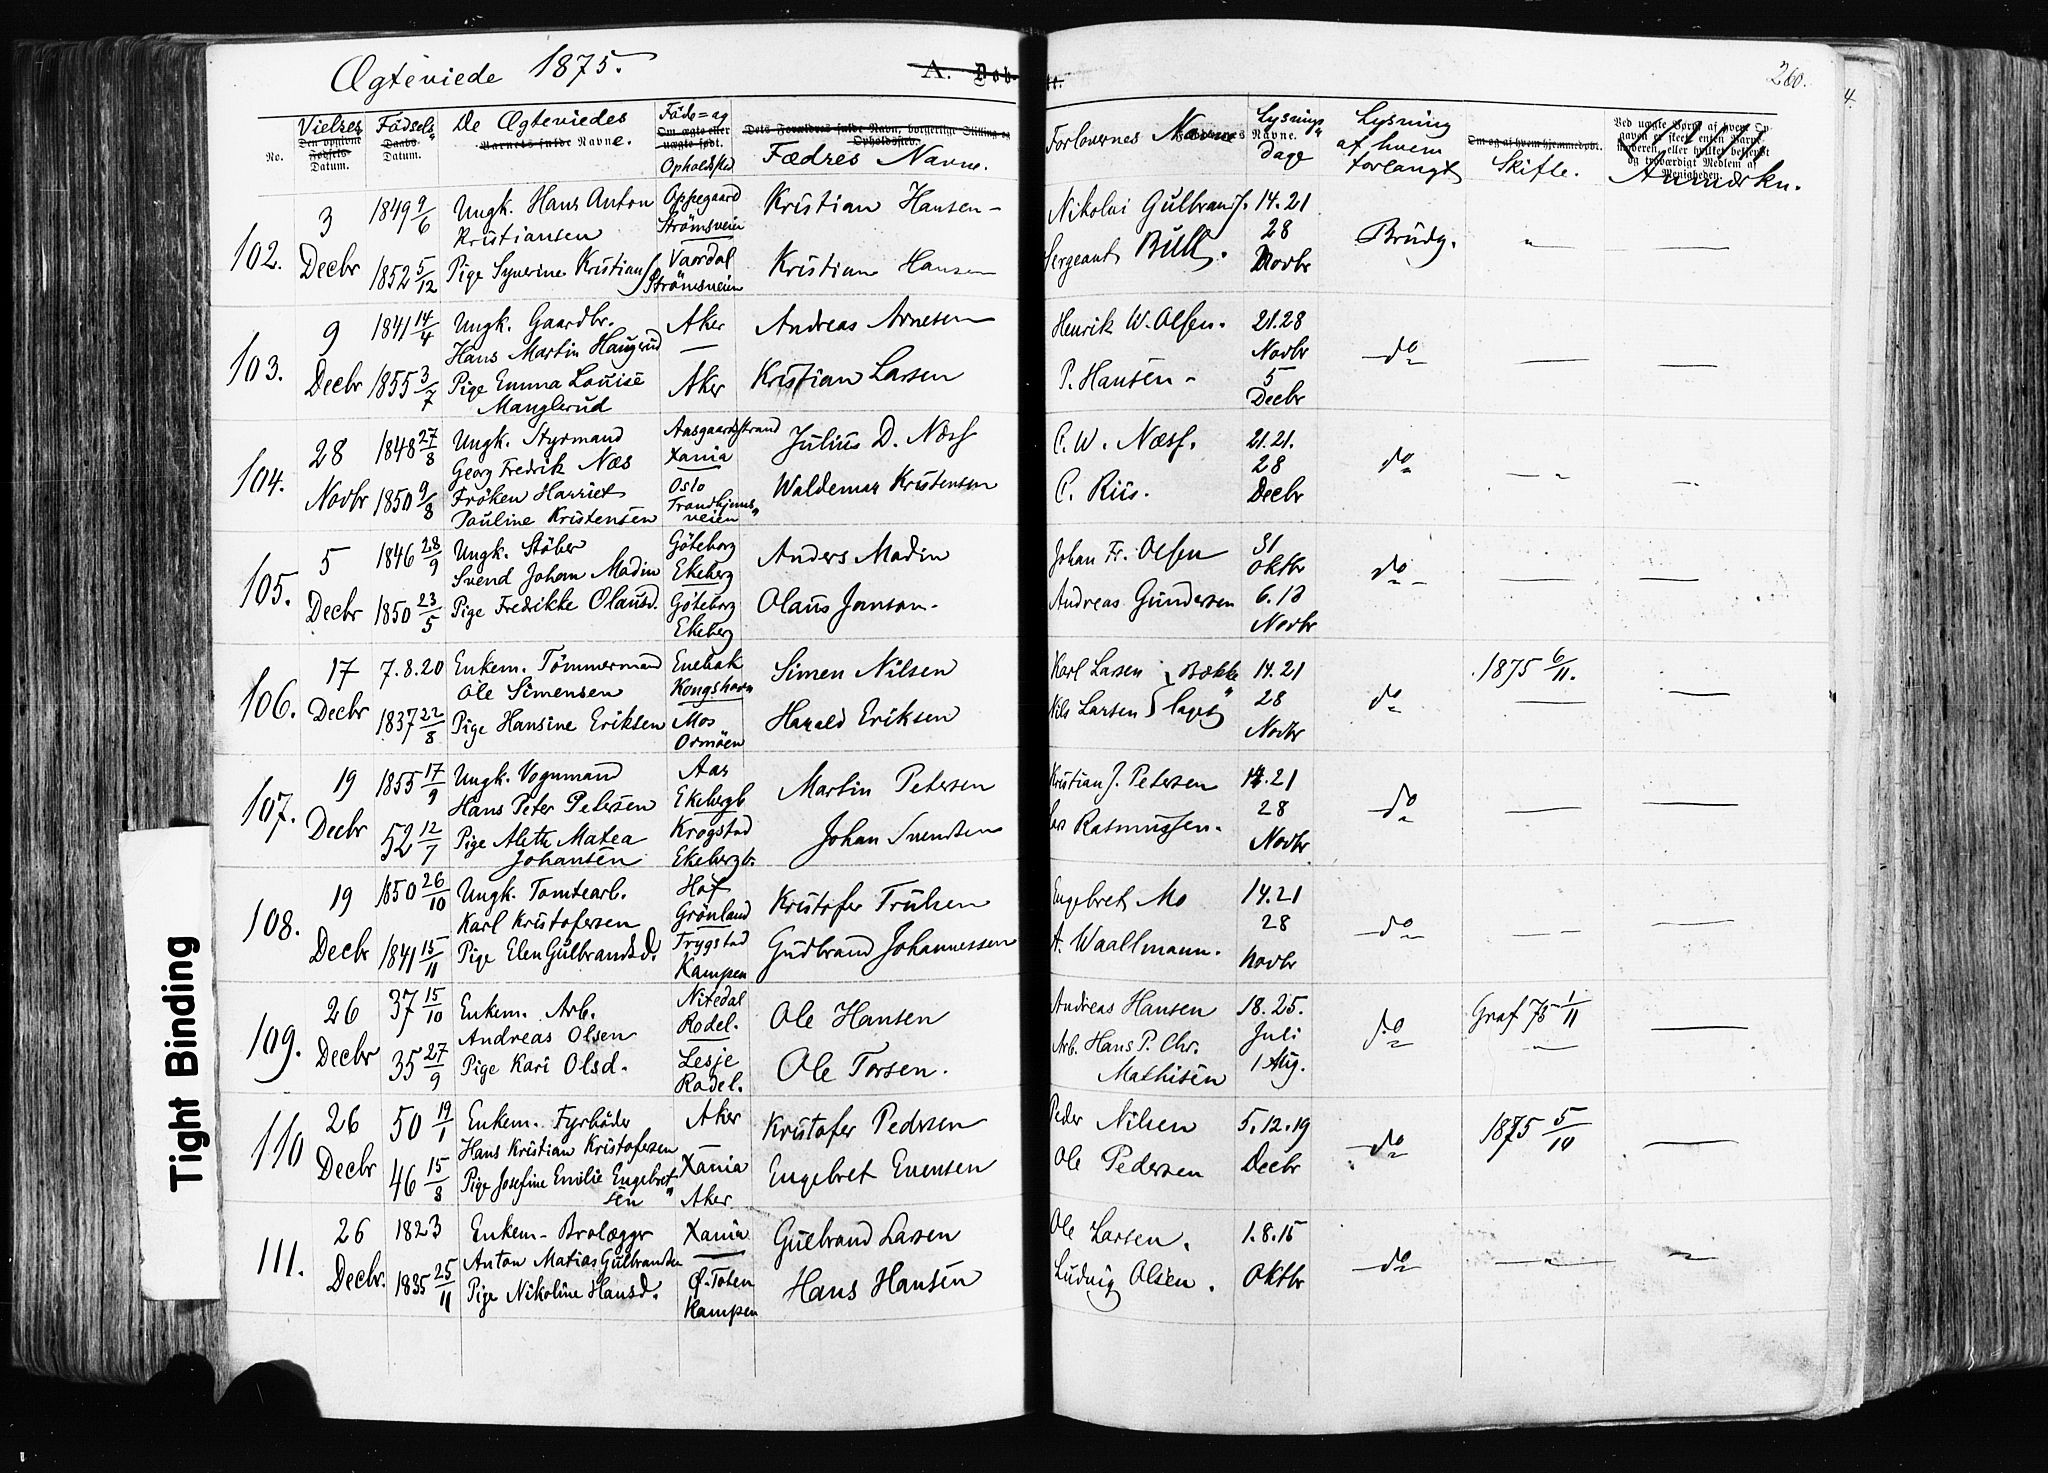 Ægteviede 1875.
A. Døb-
te.
260.
4.
No.
Vielses
Den opgivne Fødsels-
Datum.
Fødsels"
Daabs-
Datum.
De Ægteviedes
Barnets fulde Navne.
Føde= og
Om ægte eller uægte født.
Opholdssted
Dets Forældres fulde Navn, borgerlige Stilling og Opholdssted.
Fædres Navne.
Forlovernes Navne
Faddernes Navne.
Lysnings"
dage
Lysning
af hvem
forlangt
Om og af hvem hjemmedøbt.
Skifte.
Ved uægte Børn: af hvem Op-
gaven er skeet enten Barne-
faderen, eller hvilket bekjendt
og troværdigt Medlem af
Menigheden.
Anmærkn.
102.
3
Decbr
1849 9/6
Ungk. Hans Anton
Kristiansen
Oppegaard
Strömsveien
Kristian Hansen -
1852 5/12
Pige Syverine Kristians
Vaardal
Strömsveien
Kristian Hansen
Nikolai Gulbran
Sergeant Bull.
14.21
28
Novbr
Brudg.
"
103.
9
Decbr
1841 14/4
Ungk. Gaardbr.
Hans Martin Haugerud
Aker
Andreas Arnesen
1855 3/7
Pige Emma Louise
Manglerud
Aker
Kristian Larsen
Henrik W. Olsen.
P. Hansen -
21.28
Novbr
5
Decbr
do
104.
28
Novbr
1848 27/8
Ungk. Styrmand
Georg Fredrik Næs
Aasgaardstrand
Xania
Julius D. Næss
1850 9/8
Fröken Harriet
Pauline Kristensen
Oslo
Trondhjems"
veien
Waldemar Kristensen
C. W. Næss.
C. Riis.
21.21.
28
Decbr
do
105.
5
Decbr
1846 28/9
Ungk. Stöber
Svend Johan Madin
Göteborg
Ekeberg
Anders Madin
1850 23/5
Pige Fredrikke Olausd.
Göteborg
Ekeberg
Olaus Jonson.
Johan Fr. Olsen
Andreas Gundersen
31
Oktbr
6.13
Novbr
do
106.
17
Decbr
7.8.20
Enkem. Tömmermand
Ole Simensen
Enebak
Kongshavn
Simen Nilsen
1837 22/8
Pige Hansine Eriksen
Mos
Ormöen
Harald Eriksen
Karl Larsen } Bække
Nils Larsen } laget
14.21
28
Novbr
do
1875 6/11.
107.
19
Decbr
1855 17/9
Ungk. Vognmand
Hans Peter Petersen
Aas
Ekebergb
Martin Petersen
52 12/7
Pige Alette Matea
Johansen
Krogstad
Ekebergb.
Johan Svendsen
Kristian J. Petersen
Rasmussen.
14.21
28
Novbr
do
108.
19
Decbr
1850 26/10
Ungk. Tomtearb.
Karl Kristofersen
Hof
Grönland
Kristofer Trulsen
1841 15/11
Pige Elen Gulbrandsd.
Trygstad
Kampen
Gudbrand Johannessen
Engebret Mo
A. Waallmann.
14.21
28
Novbr
do
109.
26
Decbr
37 15/10
Enkem. Arb.
Andreas Olsen
Nitedal
Rodel.
Ole Hansen
35 27/9
Pige Kari Olsd.
Lesje
Rodel.
Ole Torsen.
Andreas Hansen
Arb. Hans P. Chr.
Mathisen
18.25.
Juli
1 Aug.
do
Graf 75 1/11
110
26
Decbr
50 19/1
Enkem. Fyrböder
Hans Kristian Kristofersen
Aker
Kristofer Pedersen
46 15/8
Pige Josefine Emilie Engebret"
sen
Xania
Aker
Engebret Evensen
Peder Nilsen
Ole Pedersen
5.12.19
Decbr
do
1875 5/10
111.
26
Decbr.
1823
Enkem- Brolægger
Anton Matias Gulbrandsen
Xania
Gulbrand Larsen
1835 25/11
Pige Nikoline Hansd.
Ø. Toten
Kampen
Hans Hansen
Ole Larsen.
Ludvig Olsen.
1.8.15
Oktbr
do
Tight Binding